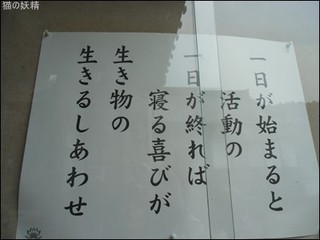 猫の妖精
一日が始まると
活動の
一日が終れば
寝る喜びが
生き物の
生きるしあわせ